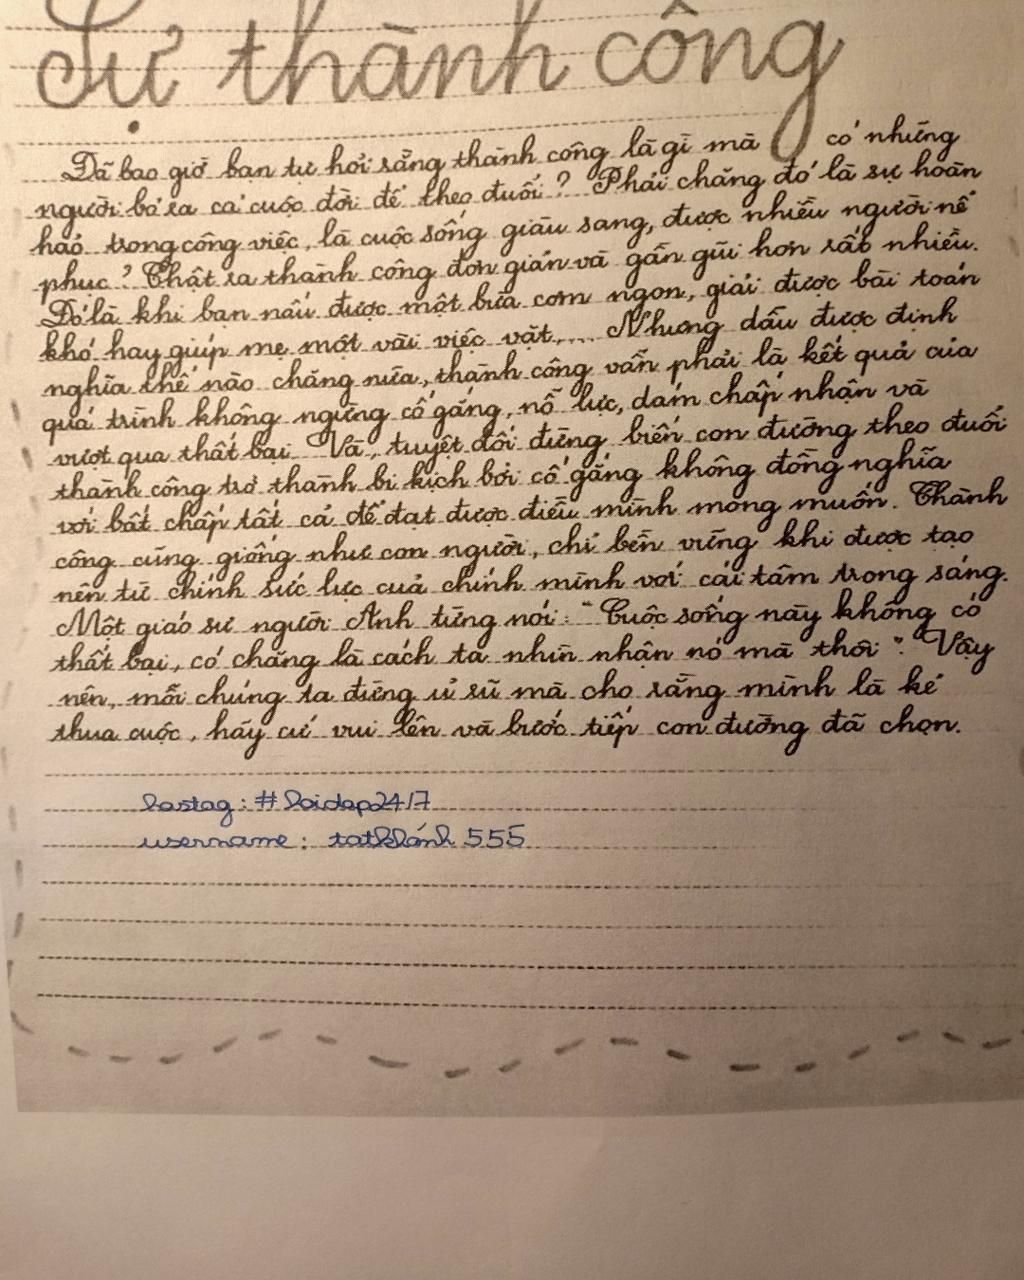 Sự thành công
Đã bao giờ bạn tự hỏi rằng thành công là gì mà có những
người bỏ ra cả cuộc đời để theo đuổi? Phải chăng đó là sự hoàn
hảo trong công việc, là cuộc sống giàu sang, được nhiều người nể
phục? Thật ra thành công đơn giản và gần gũi hơn rất nhiều.
Đó là khi bạn nấu được một bữa cơm ngon, giải được bài toán
khó hay giúp mẹ một vài việc vặt,... Nhưng dẫu được định
nghĩa thế nào chăng nữa, thành công vẫn phải là kết quả của
quá trình không ngừng cố gắng, nỗ lực, dám chấp nhận và
vượt qua thất bại. Và, tuyệt đối đừng biến con đường theo đuổi
thành công trở thành bi kịch bởi cố gắng không đồng nghĩa
với bất chấp tất cả để đạt được điều mình mong muốn. Thành
công cũng giống như con người, chỉ bền vững khi được tạo
nên từ chính sức lực của chính mình với cái tâm trong sáng.
Một giáo sư người Anh từng nói: "Cuộc sống này không có
thất bại, có chăng là cách ta nhìn nhận nó mà thôi". Vậy
nên, mỗi chúng ta đừng ủ rũ mà cho rằng mình là kẻ
thua cuộc, hãy cứ vui lên và bước tiếp con đường đã chọn.
hastag: #hoidap247
username: tatkhánh555